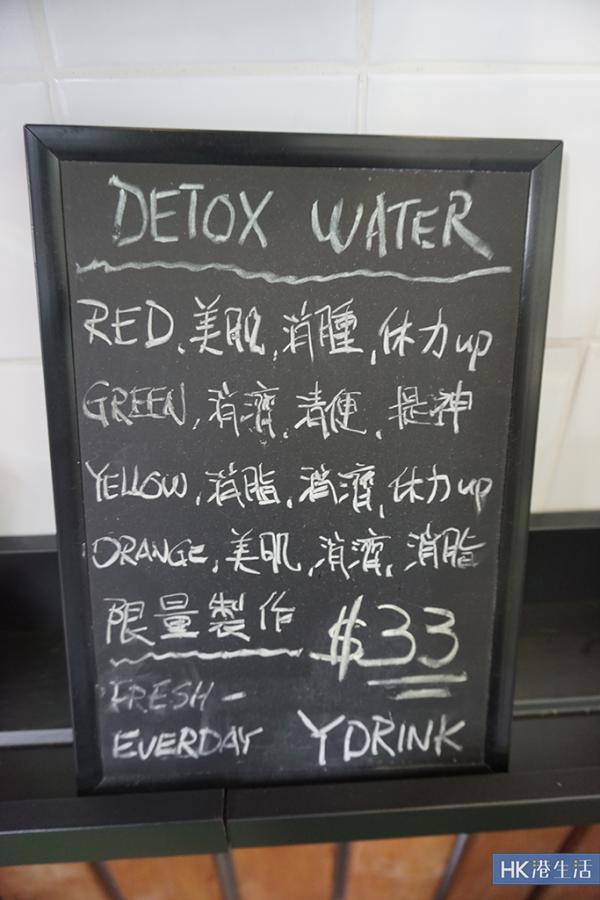 DETOX WATER
RED, 美肌, 消腫, 体力up
GREEN, 消濟, 清便, 提神
YELLOW, 消脂, 消濟, 体力up
ORANGE, 美肌, 消濟, 消脂
限量製作 $33
FRESH -
EVERDAY YDRINK
HK港生活